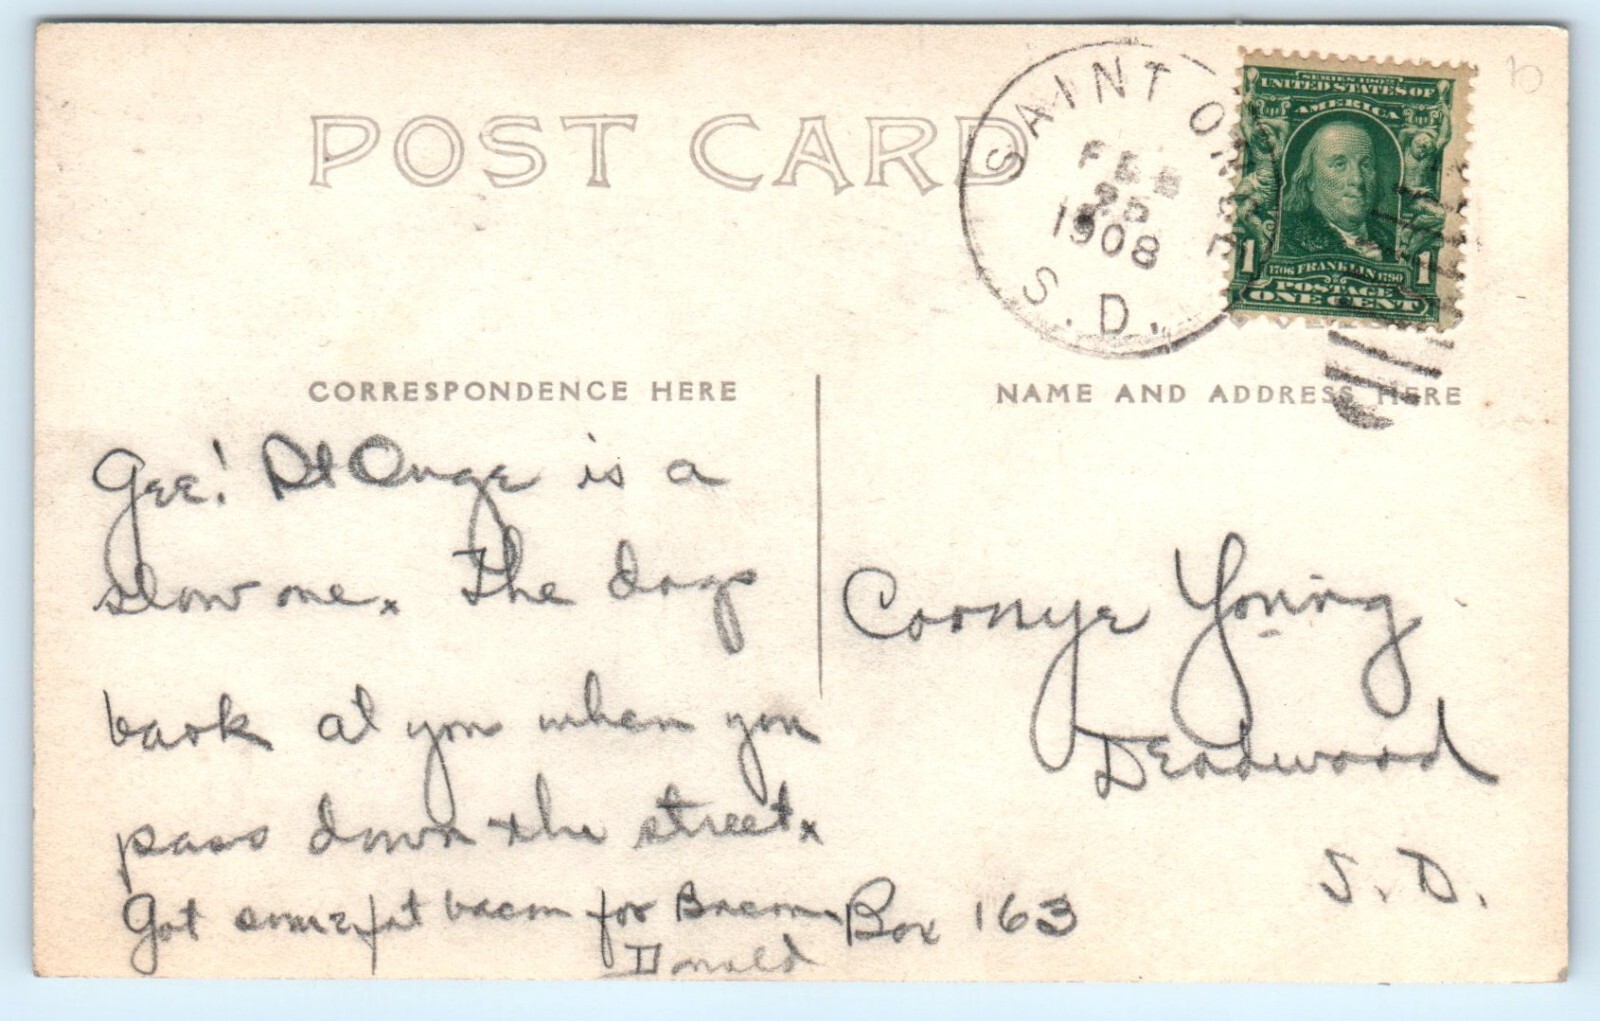 POST CARD
SAINT ONGE
FEB
25
1908
S.D.
SERIES 1902
UNITED STATES OF
AMERICA
1 1706 FRANKLIN 1790 1
POSTAGE
ONE CENT
CORRESPONDENCE HERE
NAME AND ADDRESS HERE
Gee! St Onge is a
slow one. The dogs
bark at you when you
pass down the street.
Got some fat bacon for Bacon.
Donald
Young
Deadwood
S.D.
Box 163